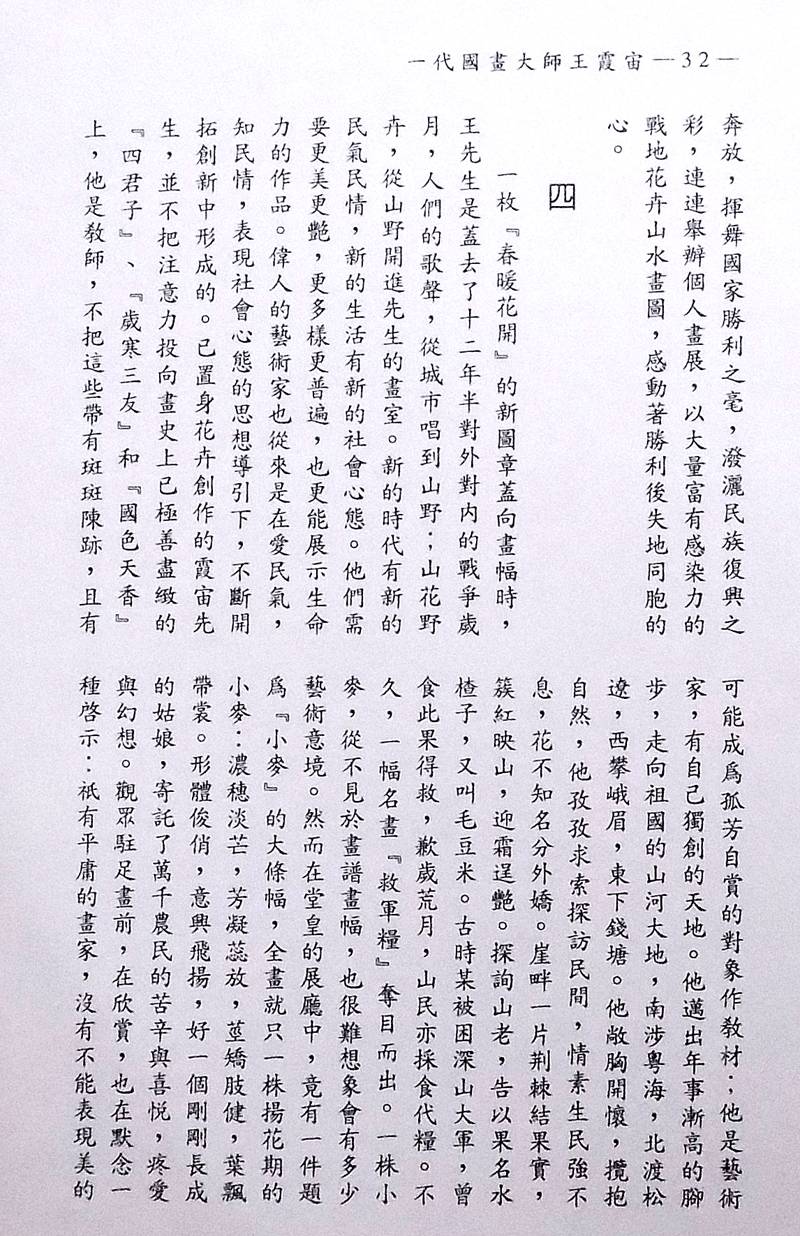 一代國畫大師王霞宙—32—
奔放，揮舞國家勝利之毫，潑灑民族復興之
彩，連連舉辦個人畫展，以大量富有感染力的
戰地花卉山水畫圖，感動著勝利後失地同胞的
心。
四
一枚『春暖花開』的新圖章蓋向畫幅時，
王先生是蓋去了十二年半對外對內的戰爭歲
月，人們的歌聲，從城市唱到山野；山花野
卉，從山野開進先生的畫室。新的時代有新的
民氣民情，新的生活有新的社會心態。他們需
要更美更艷，更多樣更普遍，也更能展示生命
力的作品。偉人的藝術家也從來是在愛民氣，
知民情，表現社會心態的思想導引下，不斷開
拓創新中形成的。已置身花卉創作的霞宙先
生，並不把注意力投向畫史上已極善盡緻的
『四君子』、『歲寒三友』和『國色天香』
上，他是教師，不把這些帶有斑斑陳跡，且有
可能成爲孤芳自賞的對象作教材；他是藝術
家，有自己獨創的天地。他邁出年事漸高的腳
步，走向祖國的山河大地，南涉粵海，北渡松
遼，西攀峨眉，東下錢塘。他敞胸開懷，攬抱
自然，他孜孜求索探訪民間，情素生民強不
息，花不知名分外嬌。崖畔一片荆棘結果實，
簇紅映山，迎霜逞艷。探詢山老，告以果名水
楂子，又叫毛豆米。古時某被困深山大軍，曾
食此果得救，歉歲荒月，山民亦採食代糧。不
久，一幅名畫『救軍糧』奪目而出。一株小
麥，從不見於畫譜畫幅，也很難想象會有多少
藝術意境。然而在堂皇的展廳中，竟有一件題
爲『小麥』的大條幅，全畫就只一株揚花期的
小麥：濃穗淡芒，芳凝蕊放，莖矯肢健，葉飄
帶裳。形體俊俏，意興飛揚，好一個剛剛長成
的姑娘，寄託了萬千農民的苦辛與喜悅，疼愛
與幻想。觀眾駐足畫前，在欣賞，也在默念一
種啓示：祇有平庸的畫家，沒有不能表現美的